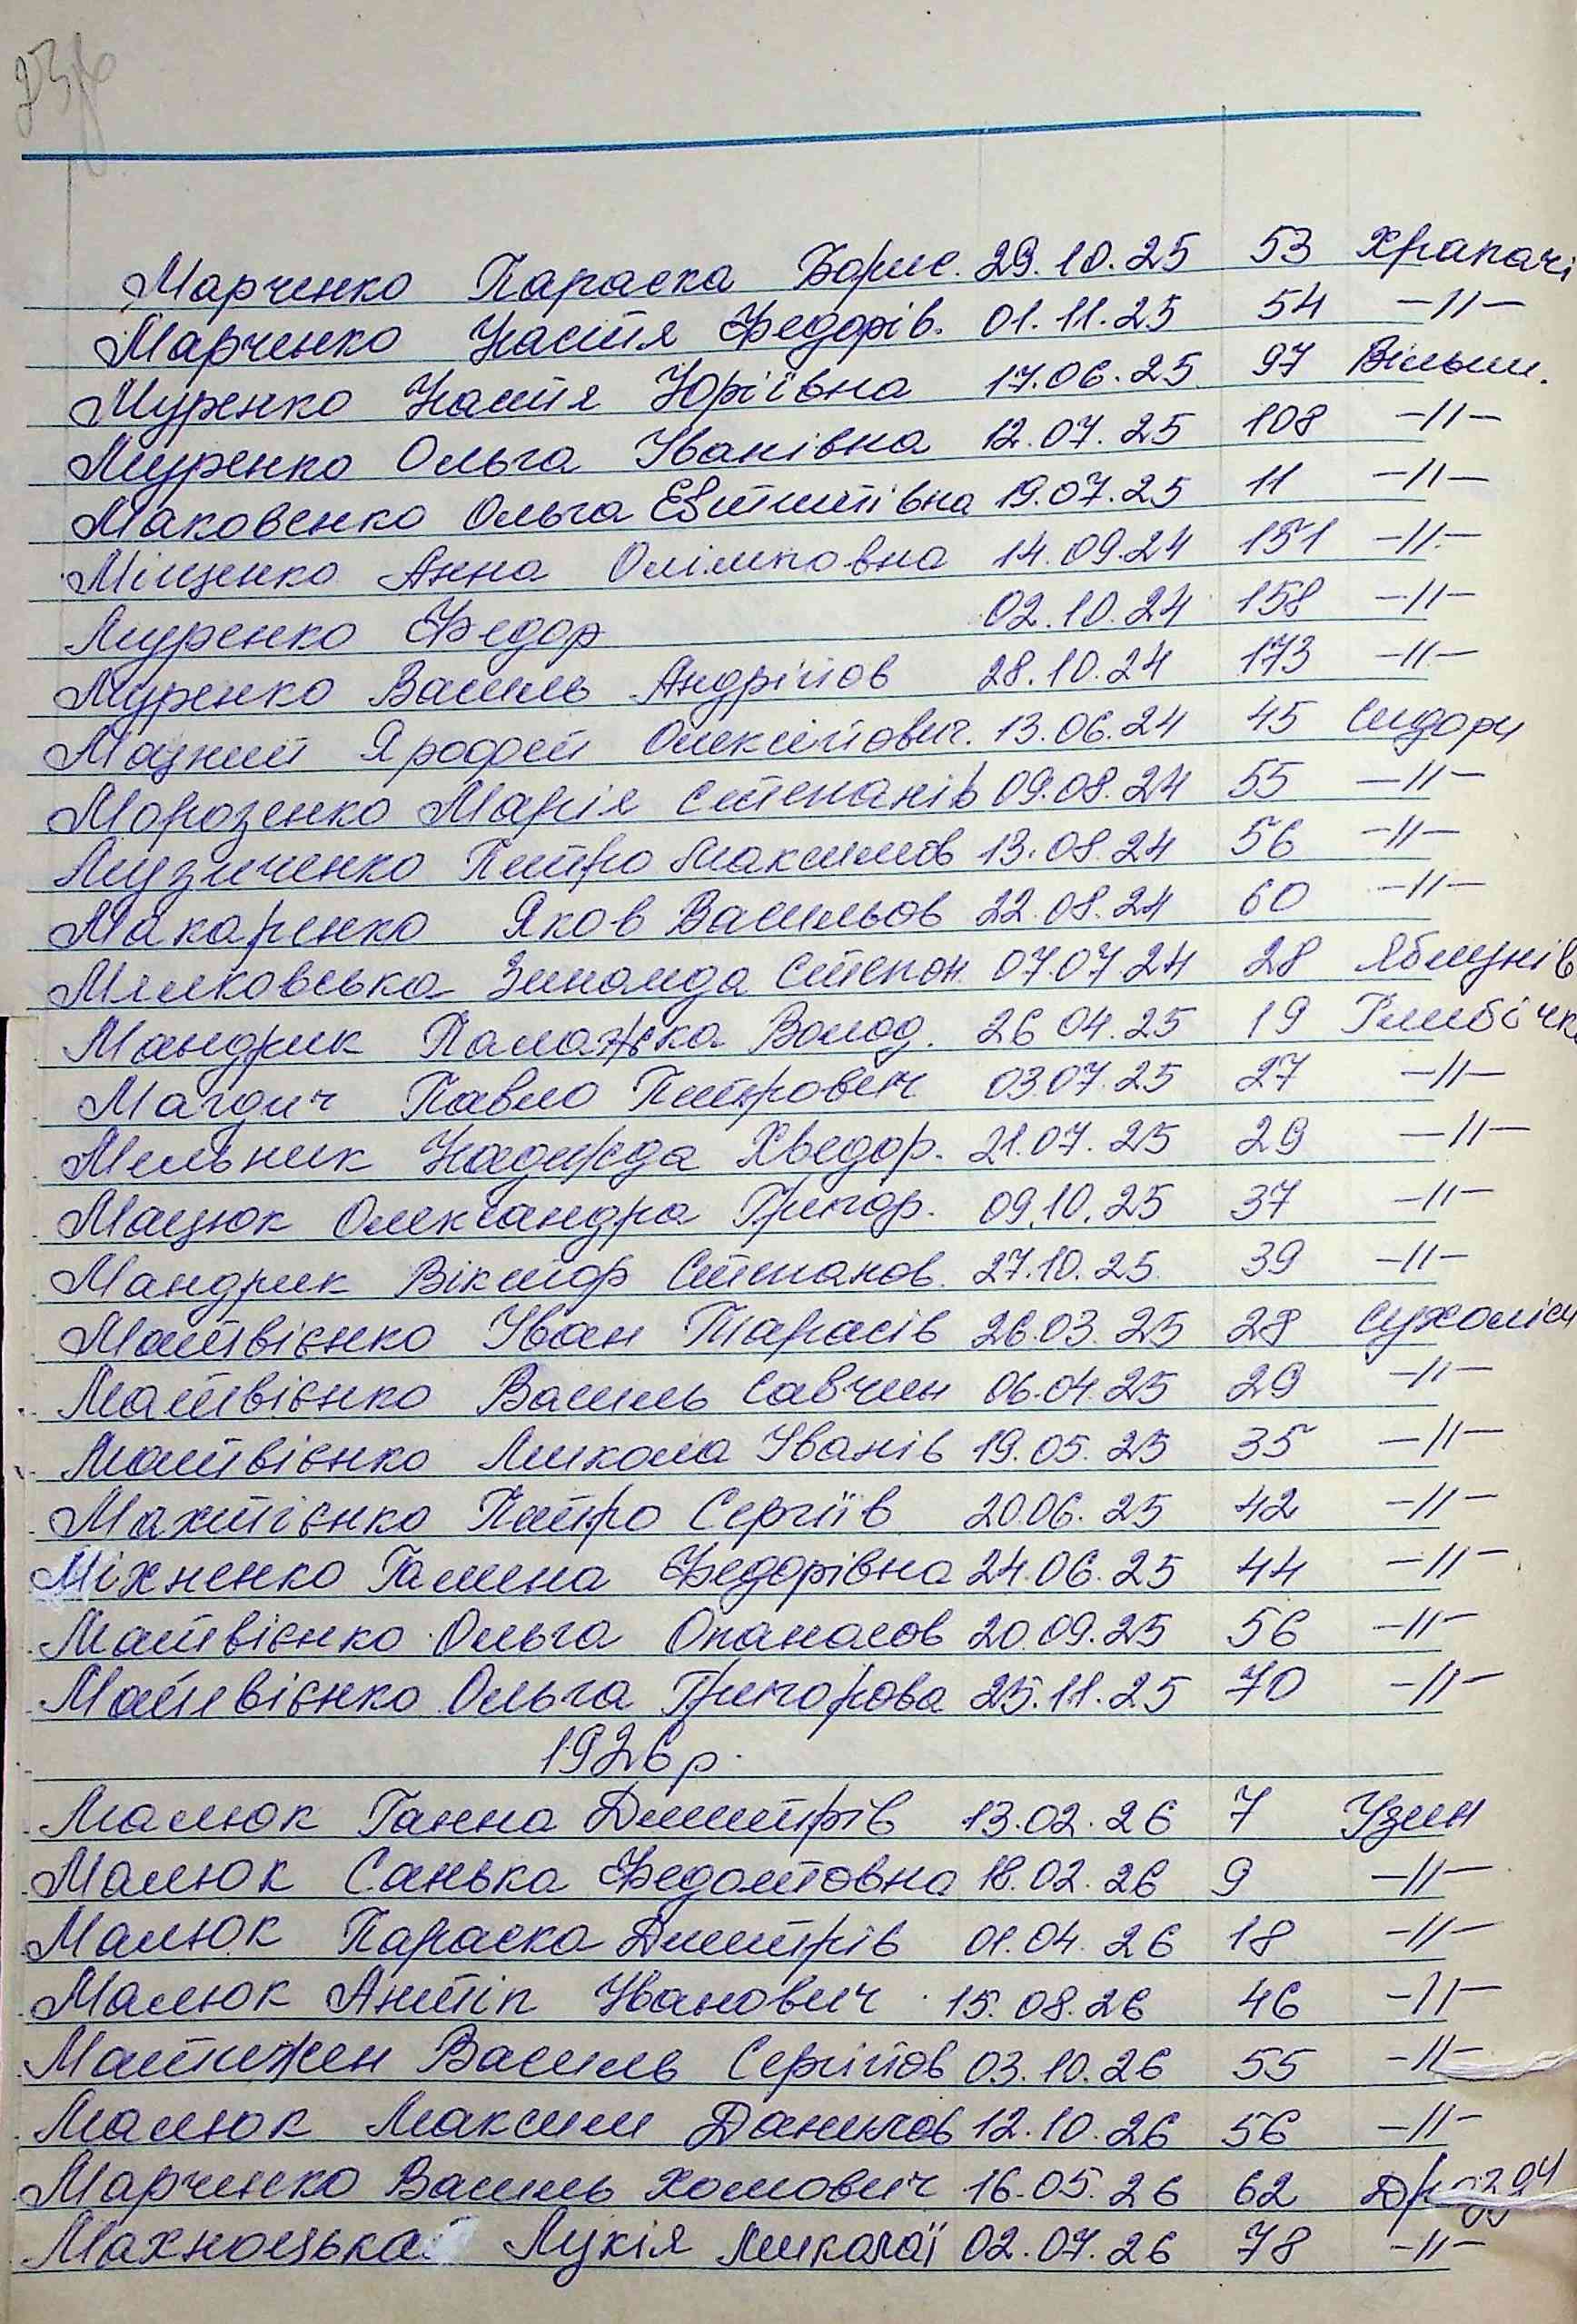 Марченко Параска Борис. 29.10.25 53 Храпачі
Марченко Настя Федорів. 01.11.25 54 -//-
Муренко Настя Юріївна 17.06.25 97 Вільш.
Муренко Ольга Іванівна 12.07.25 108 -//-
Маковенко Ольга Євтитівна 19.07.25 11 -//-
Міщенко Анна Олімповна 14.09.24 151 -//-
Муренко Федор 02.10.24 158 -//-
Муренко Василь Андрійов 28.10.24 173 -//-
Мацкий Ярофей Олексійович. 13.06.24 45 Сидори
Морозенко Марія Степанів 09.08.24 55 -//-
Музиченко Питро Максимов 13.08.24 56 -//-
Макаренко Яков Васильов 22.08.24 60 -//-
Мялковська Зинаида Степан. 07.07.24 28 Яблунів
Мандрик Палажка Волод. 26.04.25 19 Глибічка
Магдич Павло Питрович 03.07.25 27 -//-
Мельник Надежда Хведор. 21.07.25 29 -//-
Мацюк Олександра Григор. 09.10.25 37 -//-
Мандрик Віктор Степанов. 27.10.25 39 -//-
Матвієнко Іван Тарасів 26.03.25 28 Сухоліси
Матвієнко Василь Савчин 06.04.25 29 -//-
Матвієнко Микола Іванів 19.05.25 35 -//-
Махтієнко Патро Сергіїв 20.06.25 42 -//-
Міхненко Галина Федорівна 24.06.25 44 -//-
Матвієнко Ольга Опанасов 20.09.25 56 -//-
Матвієнко Ольга Григорова 25.11.25 70 -//-
1926р.
Малюк Ганна Димитрів 13.02.26 7 Узин
Малюк Санька Федотовна 18.02.26 9 -//-
Малюк Параска Димитрів 01.04.26 18 -//-
Малюк Антіп Іванович 15.08.26 46 -//-
Матижен Василь Сергійов 03.10.26 55 -//-
Малюк Максим Данилов 12.10.26 56 -//-
Марченко Василь Хомович 16.05.26 62
Махноцька Лукія Миколаї 02.07.26 78 -//-